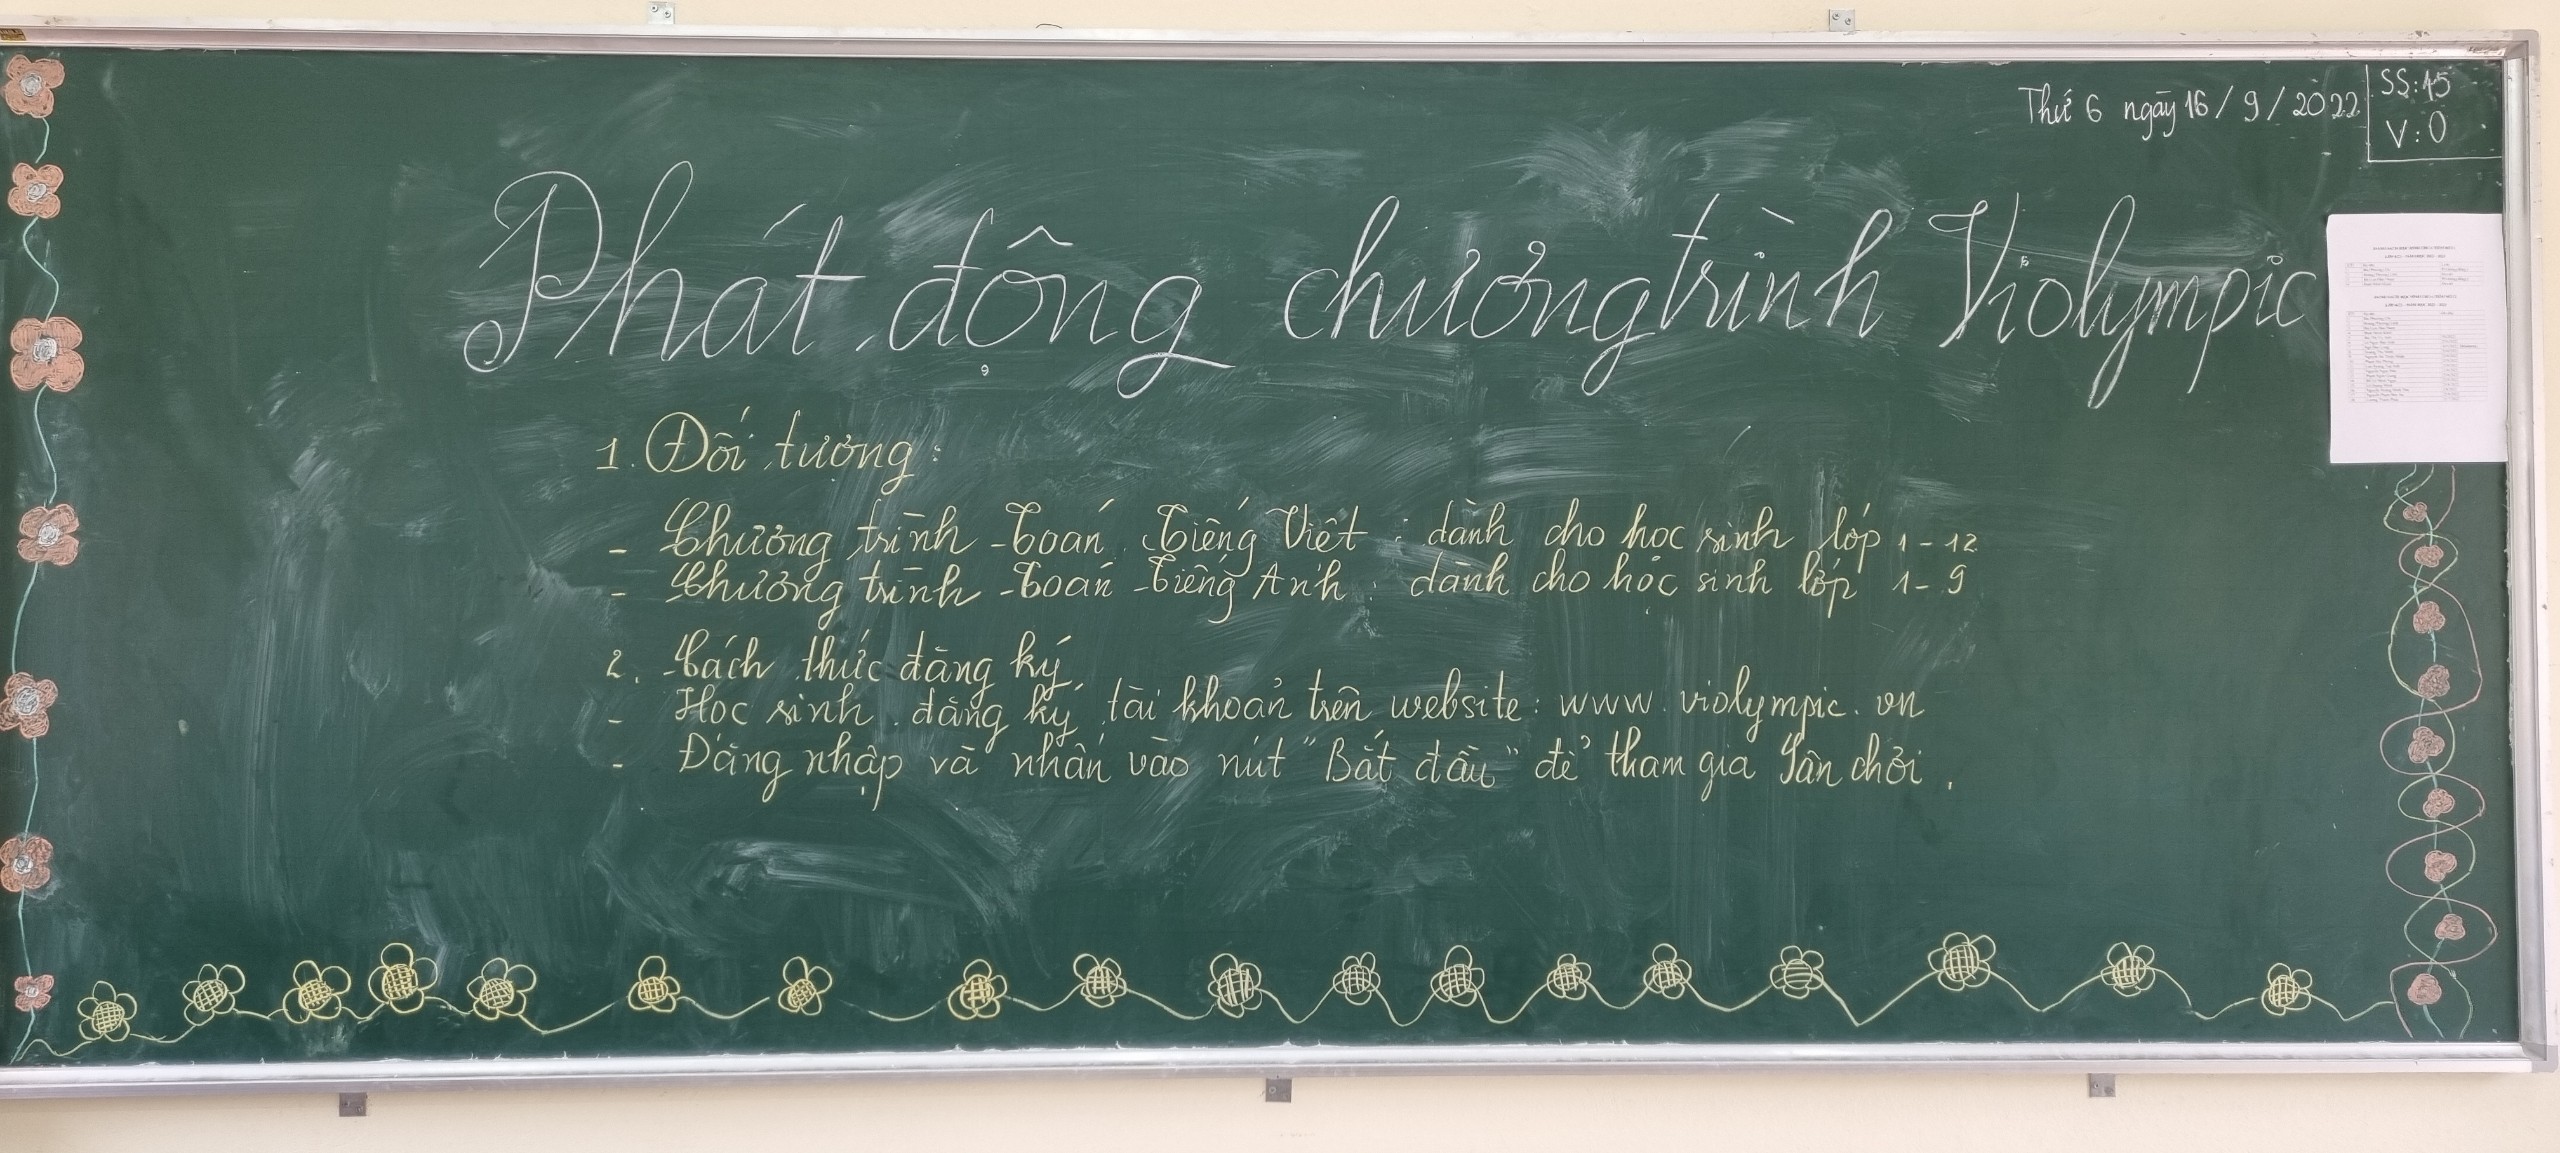 Thứ 6 ngày 16/9/2022
SS: 45
V: 0
Phát động chương trình Violympic
1. Đối tượng:
- Chương trình Toán Tiếng Việt: dành cho học sinh lớp 1-12
- Chương trình Toán Tiếng Anh: dành cho học sinh lớp 1-9
2. Cách thức đăng ký
- Học sinh đăng ký tài khoản trên website: www.violympic.vn
- Đăng nhập và nhấn vào nút "Bắt đầu" để tham gia sân chơi.